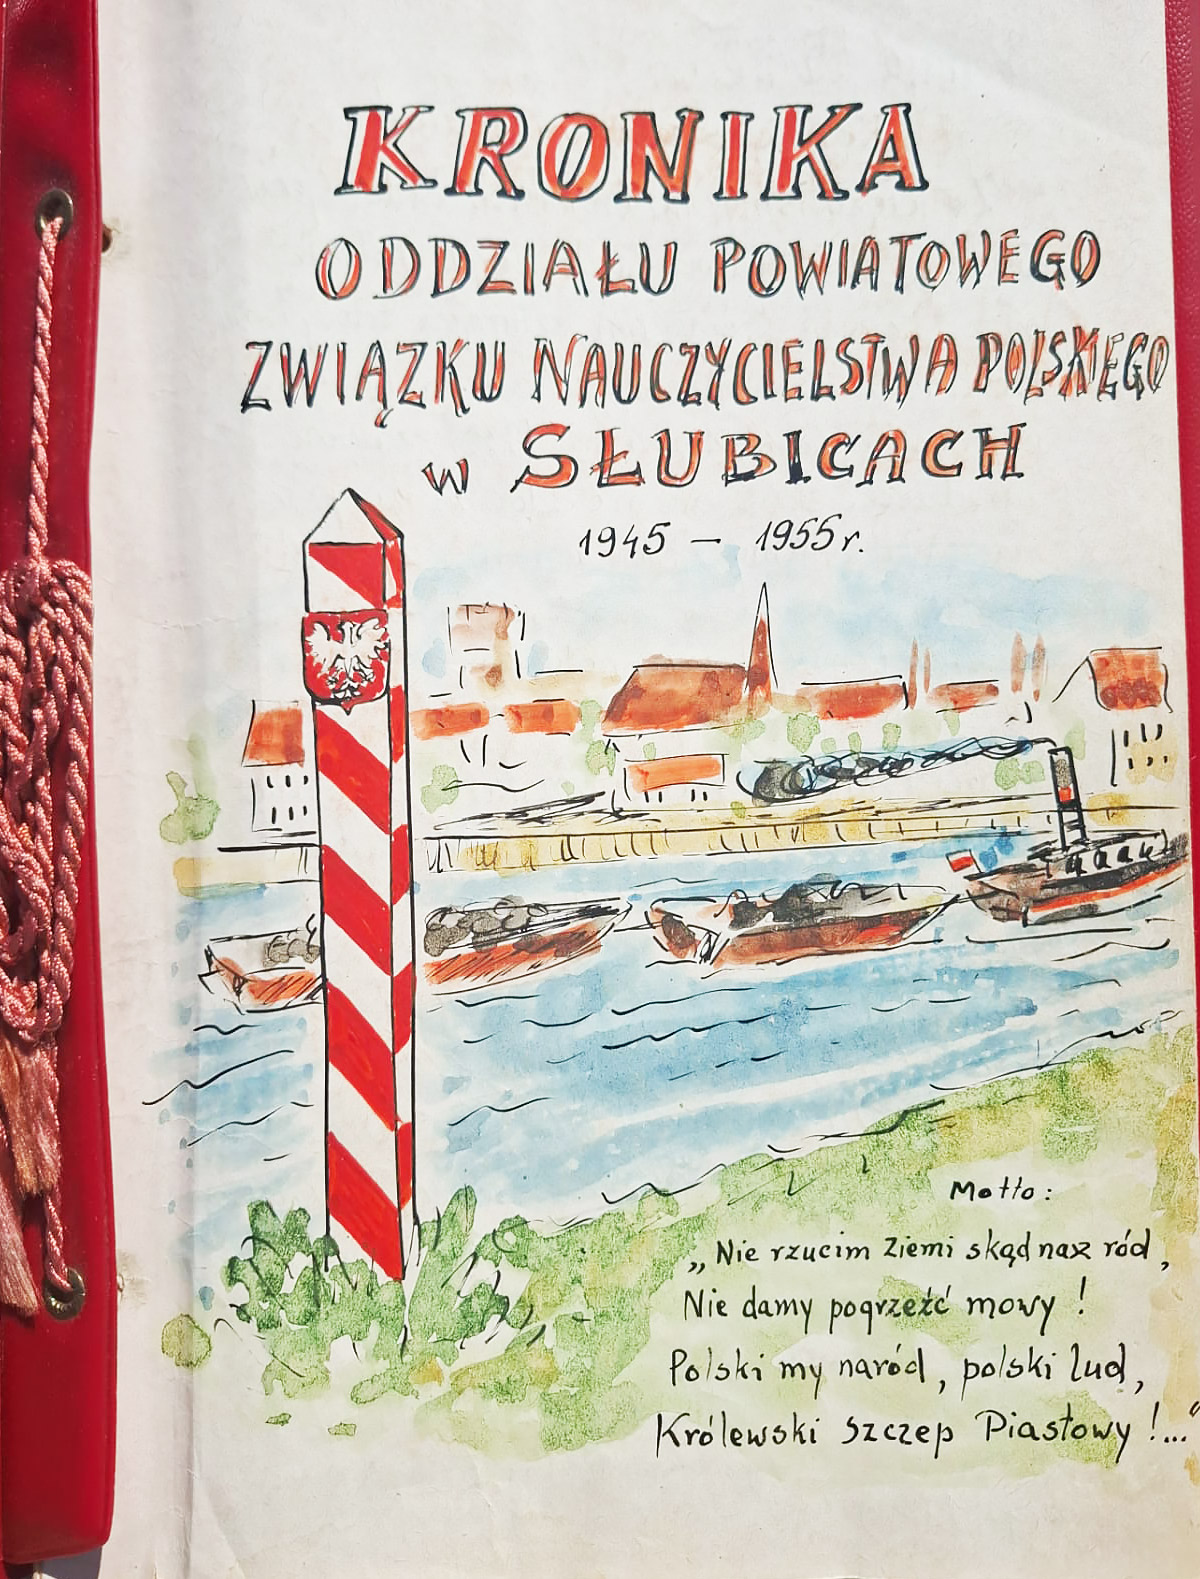 KRONIKA
ODDZIAŁU POWIATOWEGO
ZWIĄZKU NAUCZYCIELSTWA POLSKIEGO
w SŁUBICACH
1945 – 1955 r.
Motto:
„Nie rzucim ziemi skąd nasz ród,
Nie damy pogrześć mowy!
Polski my naród, polski lud,
Królewski szczep Piastowy!..."